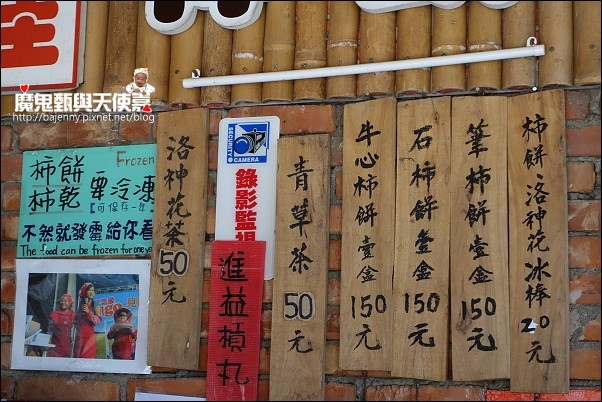 魔鬼甄與天使嘉
http://bajenny.pixnet.net/blog
柿餅 Frozen
柿乾 要冷凍
【可保存一年】
不然就發霉給你看
The food can be frozen for one year
洛神花茶 50元
SECURITY CAMERA
錄影監視
進益檳丸
青草茶 50元
牛心柿餅壹盒 150元
石柿餅壹盒 150元
筆柿餅壹盒 150元
柿餅、洛神花冰棒 20元